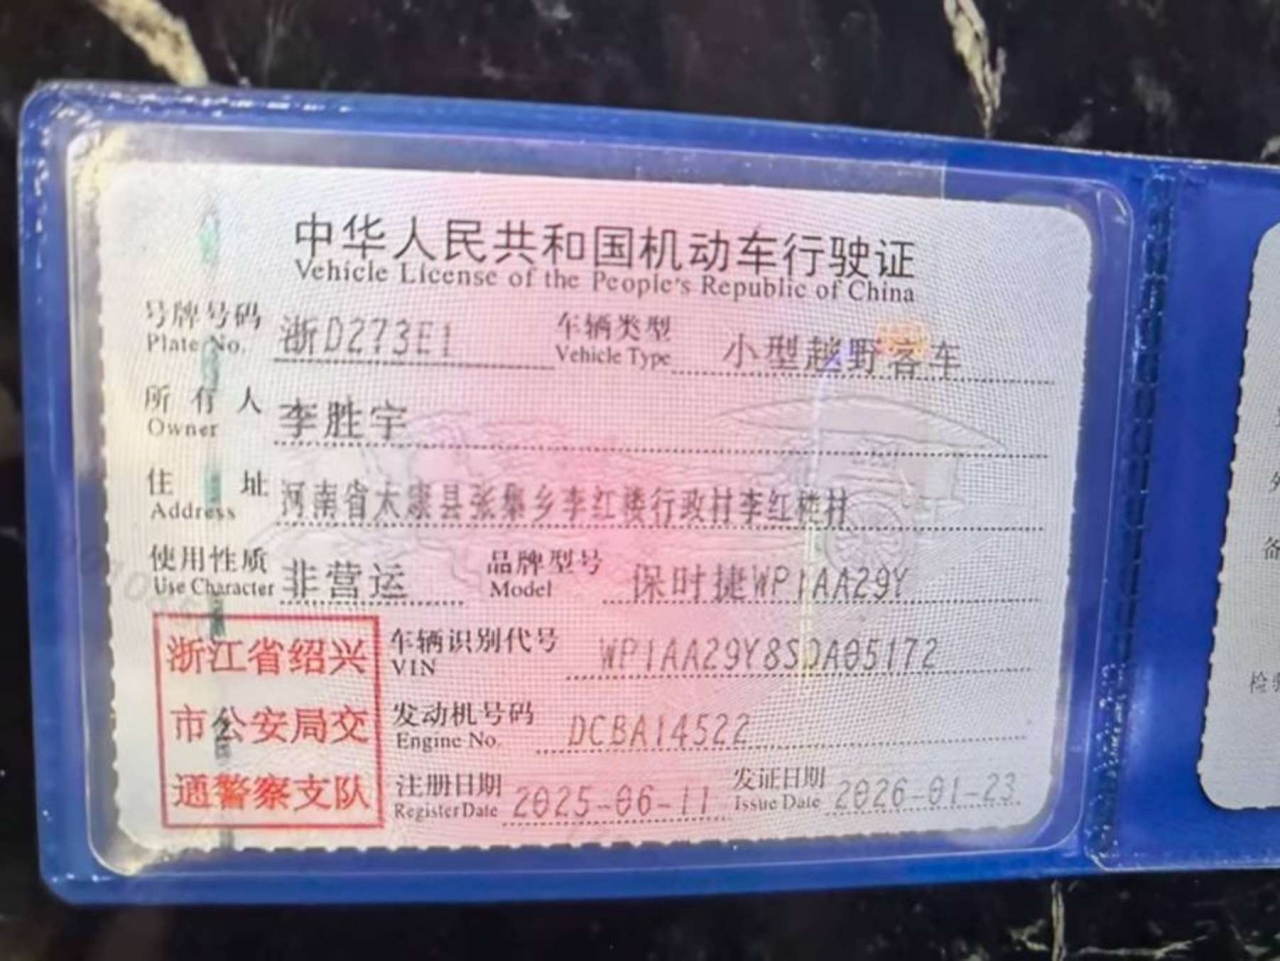 中华人民共和国机动车行驶证
Vehicle License of the People's Republic of China
号牌号码 浙D273E1 车辆类型 小型越野客车
Plate No. Vehicle Type
所有人 李胜宇
Owner
住址 河南省太康县张集乡李红楼行政村李红楼村
Address
使用性质 非营运 品牌型号 保时捷WP1AA29Y
Use Character Model
浙江省绍兴 车辆识别代号 WP1AA29Y8SDA05172
VIN
市公安局交 发动机号码 DCBA14522
Engine No.
通警察支队 注册日期 2025-06-11 发证日期 2026-01-23
Register Date Issue Date
备
检